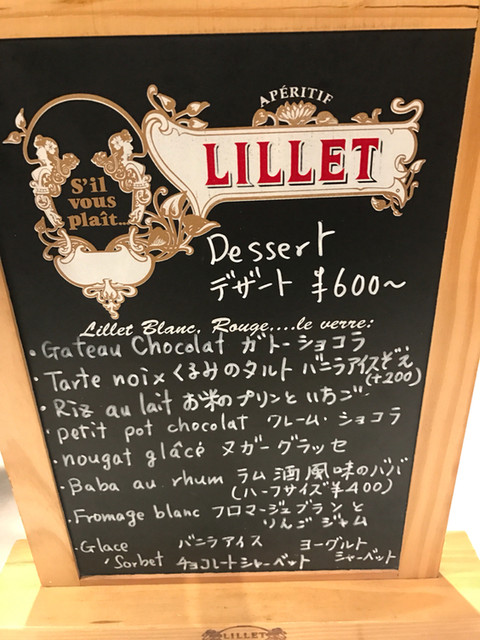 APÉRITIF
LILLET
S'il
vous
plaît...
Dessert
デザート ¥600〜
Lillet Blanc, Rouge....le verre:
・Gateau Chocolat ガトーショコラ
・Tarte noix くるみのタルト バニラアイスぞえ
(+200)
・Riz au lait お米のプリンといちご
・petit pot chocolat クレーム・ショコラ
・nougat glâcé ヌガーグラッセ
・Baba au rhum ラム酒風味のババ
(ハーフサイズ¥400)
・Fromage blanc フロマージュブランと
りんごジャム
・Glace バニラアイス ヨーグルト
シャーベット
'Sorbet チョコレートシャーベット
LILLET